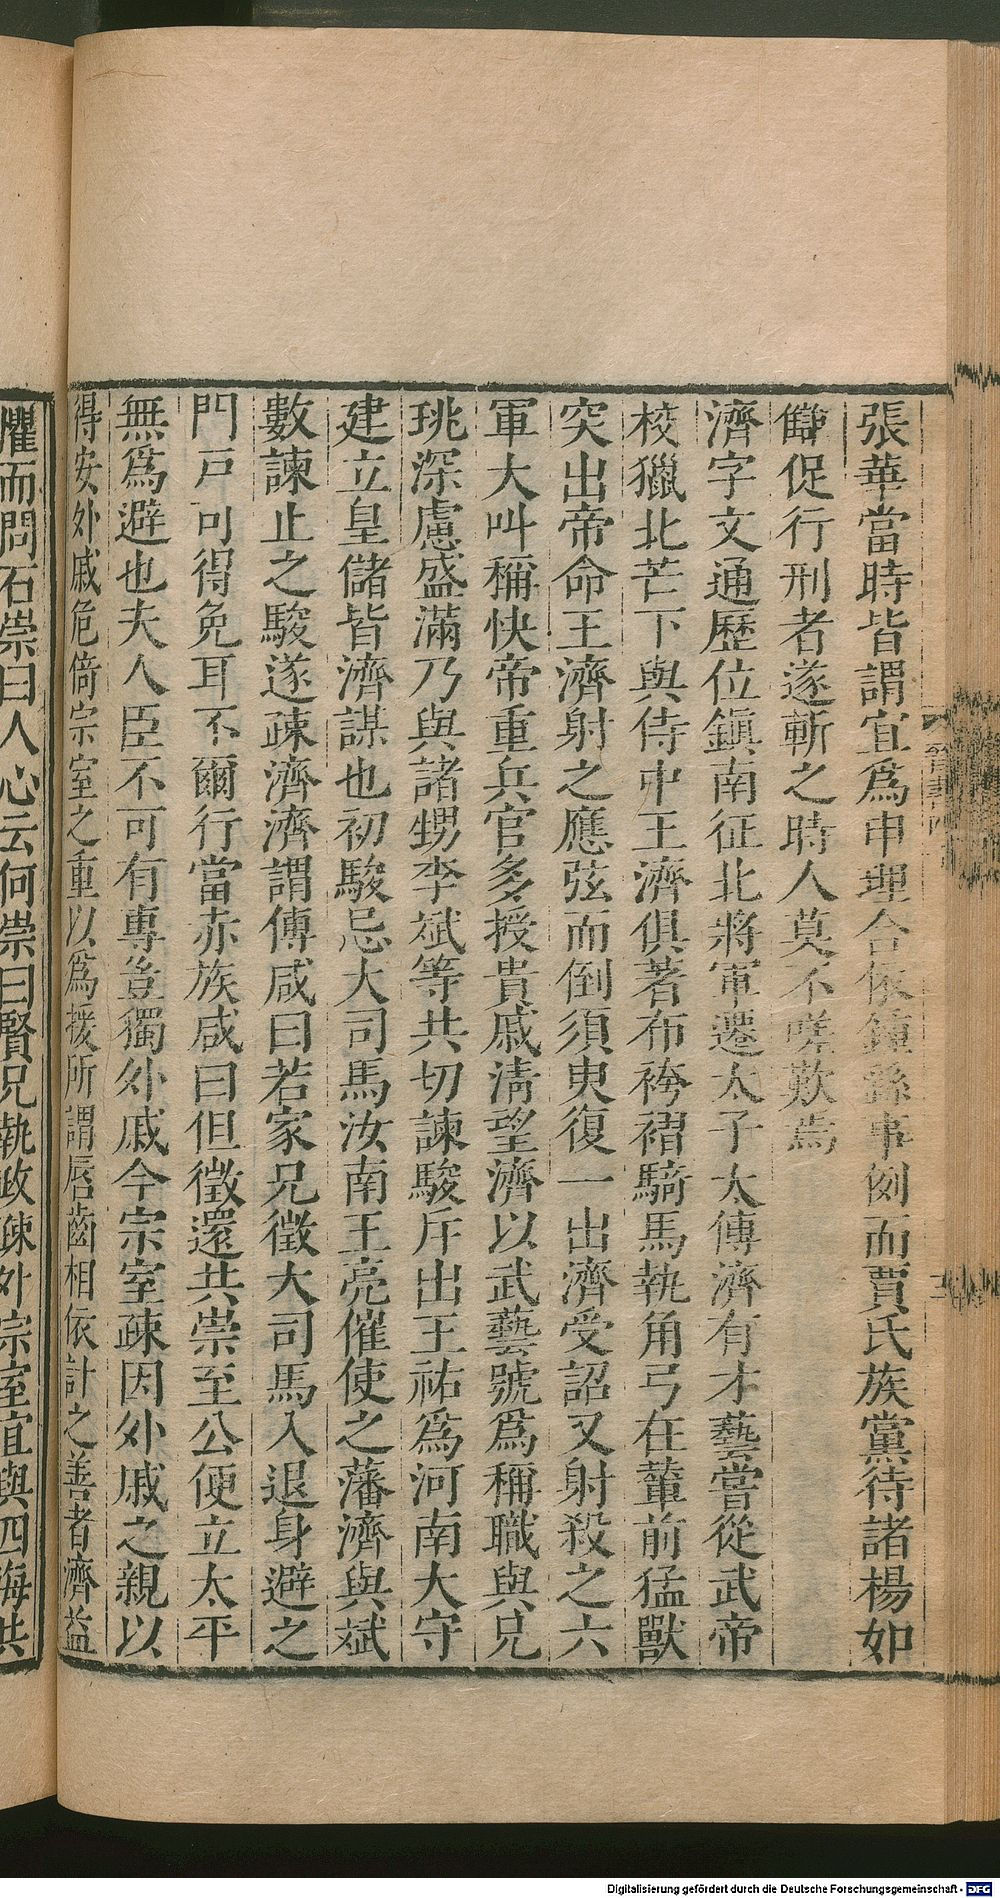 張華當時皆謂宜爲申理合依鍾繇事例而賈氏族黨待諸楊如
讎促行刑者遂斬之時人莫不嗟歎焉
濟字文通歷位鎭南征北將軍遷太子太傅濟有才藝嘗從武帝
校獵北芒下與侍中王濟俱著布袴褶騎馬執角弓在輦前猛獸
突出帝命王濟射之應弦而倒須臾復一出濟受詔又射殺之六
軍大叫稱快帝重兵官多授貴戚淸望濟以武藝號爲稱職與兄
珧深慮盛滿乃與諸甥李斌等共切諫駿斥出王祐爲河南太守
建立皇儲皆濟謀也初駿忌大司馬汝南王亮催使之藩濟與斌
數諫止之駿遂疎濟濟謂傅咸曰若家兄徵大司馬入退身避之
門戸可得免耳不爾行當赤族咸曰但徵還共崇至公便立太平
無爲避也夫人臣不可有專豈獨外戚今宗室疎因外戚之親以
得安外戚危倚宗室之重以爲援所謂唇齒相依計之善者濟益
懼而問石崇曰人心云何崇曰賢兄執政疎外宗室宜與四海共
Digitalisierung gefördert durch die Deutsche Forschungsgemeinschaft - DFG